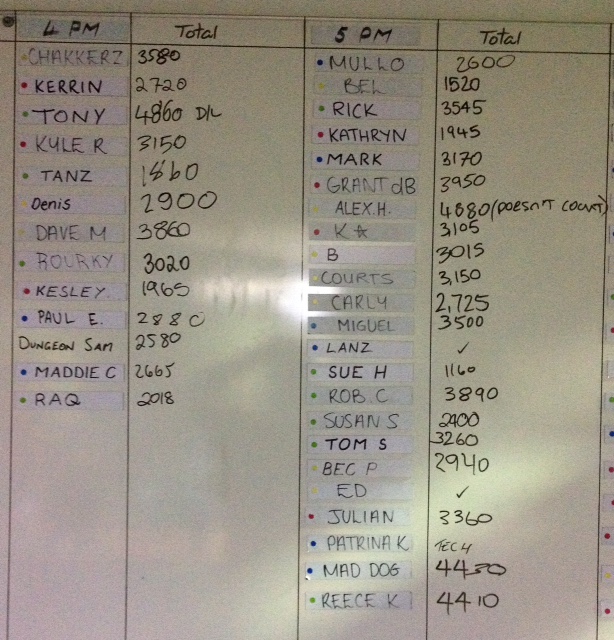 4 PM Total
CHAKKERZ 3580
KERRIN 2720
TONY 4860 D/L
KYLE R 3150
TANZ 1860
Denis 2900
DAVE M 3860
ROURKY 3020
KESLEY 1965
PAUL E. 2880
DUNGEON SAM 2580
MADDIE C 2665
RAQ 2018
5 PM Total
MULLO 2600
BEL 1520
RICK 3545
KATHRYN 1945
MARK 3170
GRANT dB 3950
ALEX.H. 4080 (DOESN'T COUNT)
K ☆ 3105
B 3015
COURTS 3,150
CARLY 2,725
MIGUEL 3500
LANZ ✓
SUE H 1160
ROB C 3890
SUSAN S 2400
TOM S 3260
BEC P 2940
ED ✓
JULIAN 3360
PATRINA K TEC 4
MAD DOG 4430
REECE K 4410